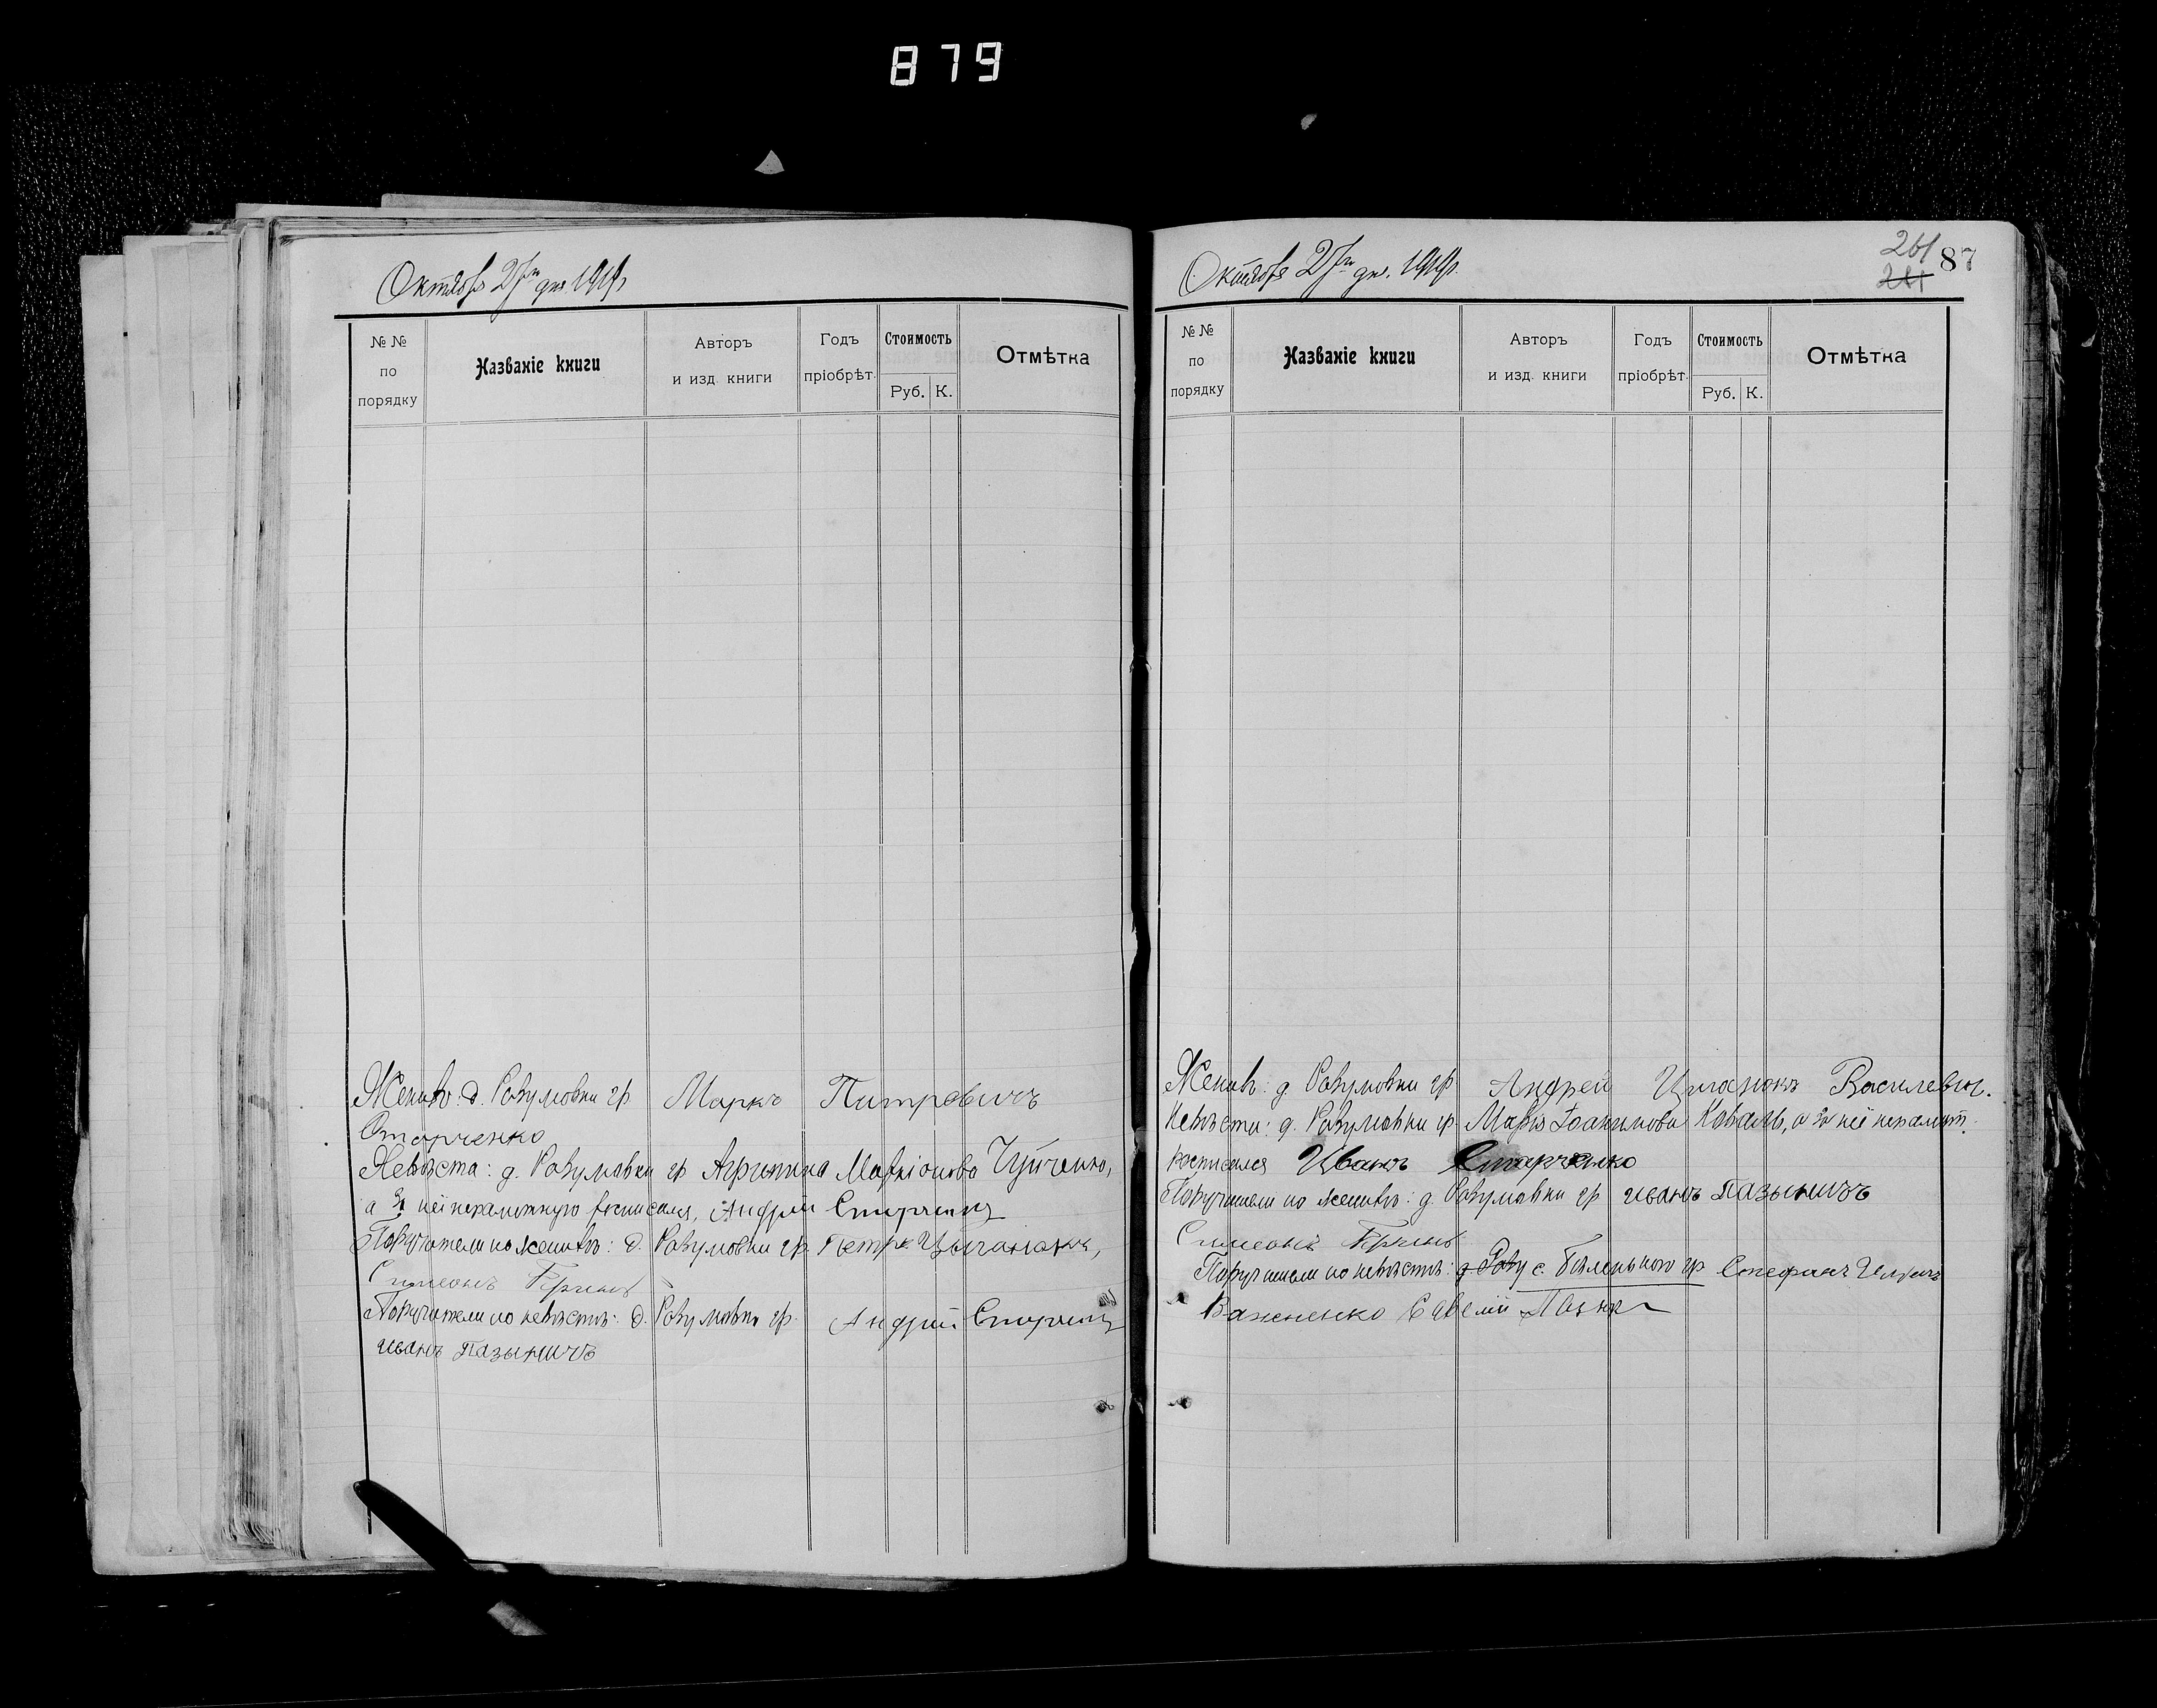 879
Октября 27го дня 1919 г.
№ №
по
порядку
Названіе книги
Авторъ
и изд. книги
Годъ
пріобрѣт.
Стоимость
Руб. К.
Отмѣтка
Женихъ: д. Розумовки гр. Маркъ Питровичъ
Старченко
Невѣста: д. Розумовки гр.
а за неё неграмотную росписался, Андрій
Поручители по женихѣ: д. Розумовки гр. Петръ Цыганокъ,
Симеонъ
Поручители по невѣстѣ: д. Розумовки гр. Андрій
иванъ пазыничъ
Октября 27го дня 1919 г.
261
87
№ №
по
порядку
Названіе книги
Авторъ
и изд. книги
Годъ
пріобрѣт.
Стоимость
Руб. К.
Отмѣтка
Женихъ: д. Розумовки гр. Андрей Циганокъ
Невѣста: д. Розумовки гр. Марія Іоакимова Коваль, а за неё неграмот.
росписался Иванъ Старченко
Поручители по женихѣ: д. Розумовки гр. иванъ пазыничъ
Симеонъ
Поручители по невѣстѣ: с. Бѣленького гр. Стефанъ
Важненко Савелій